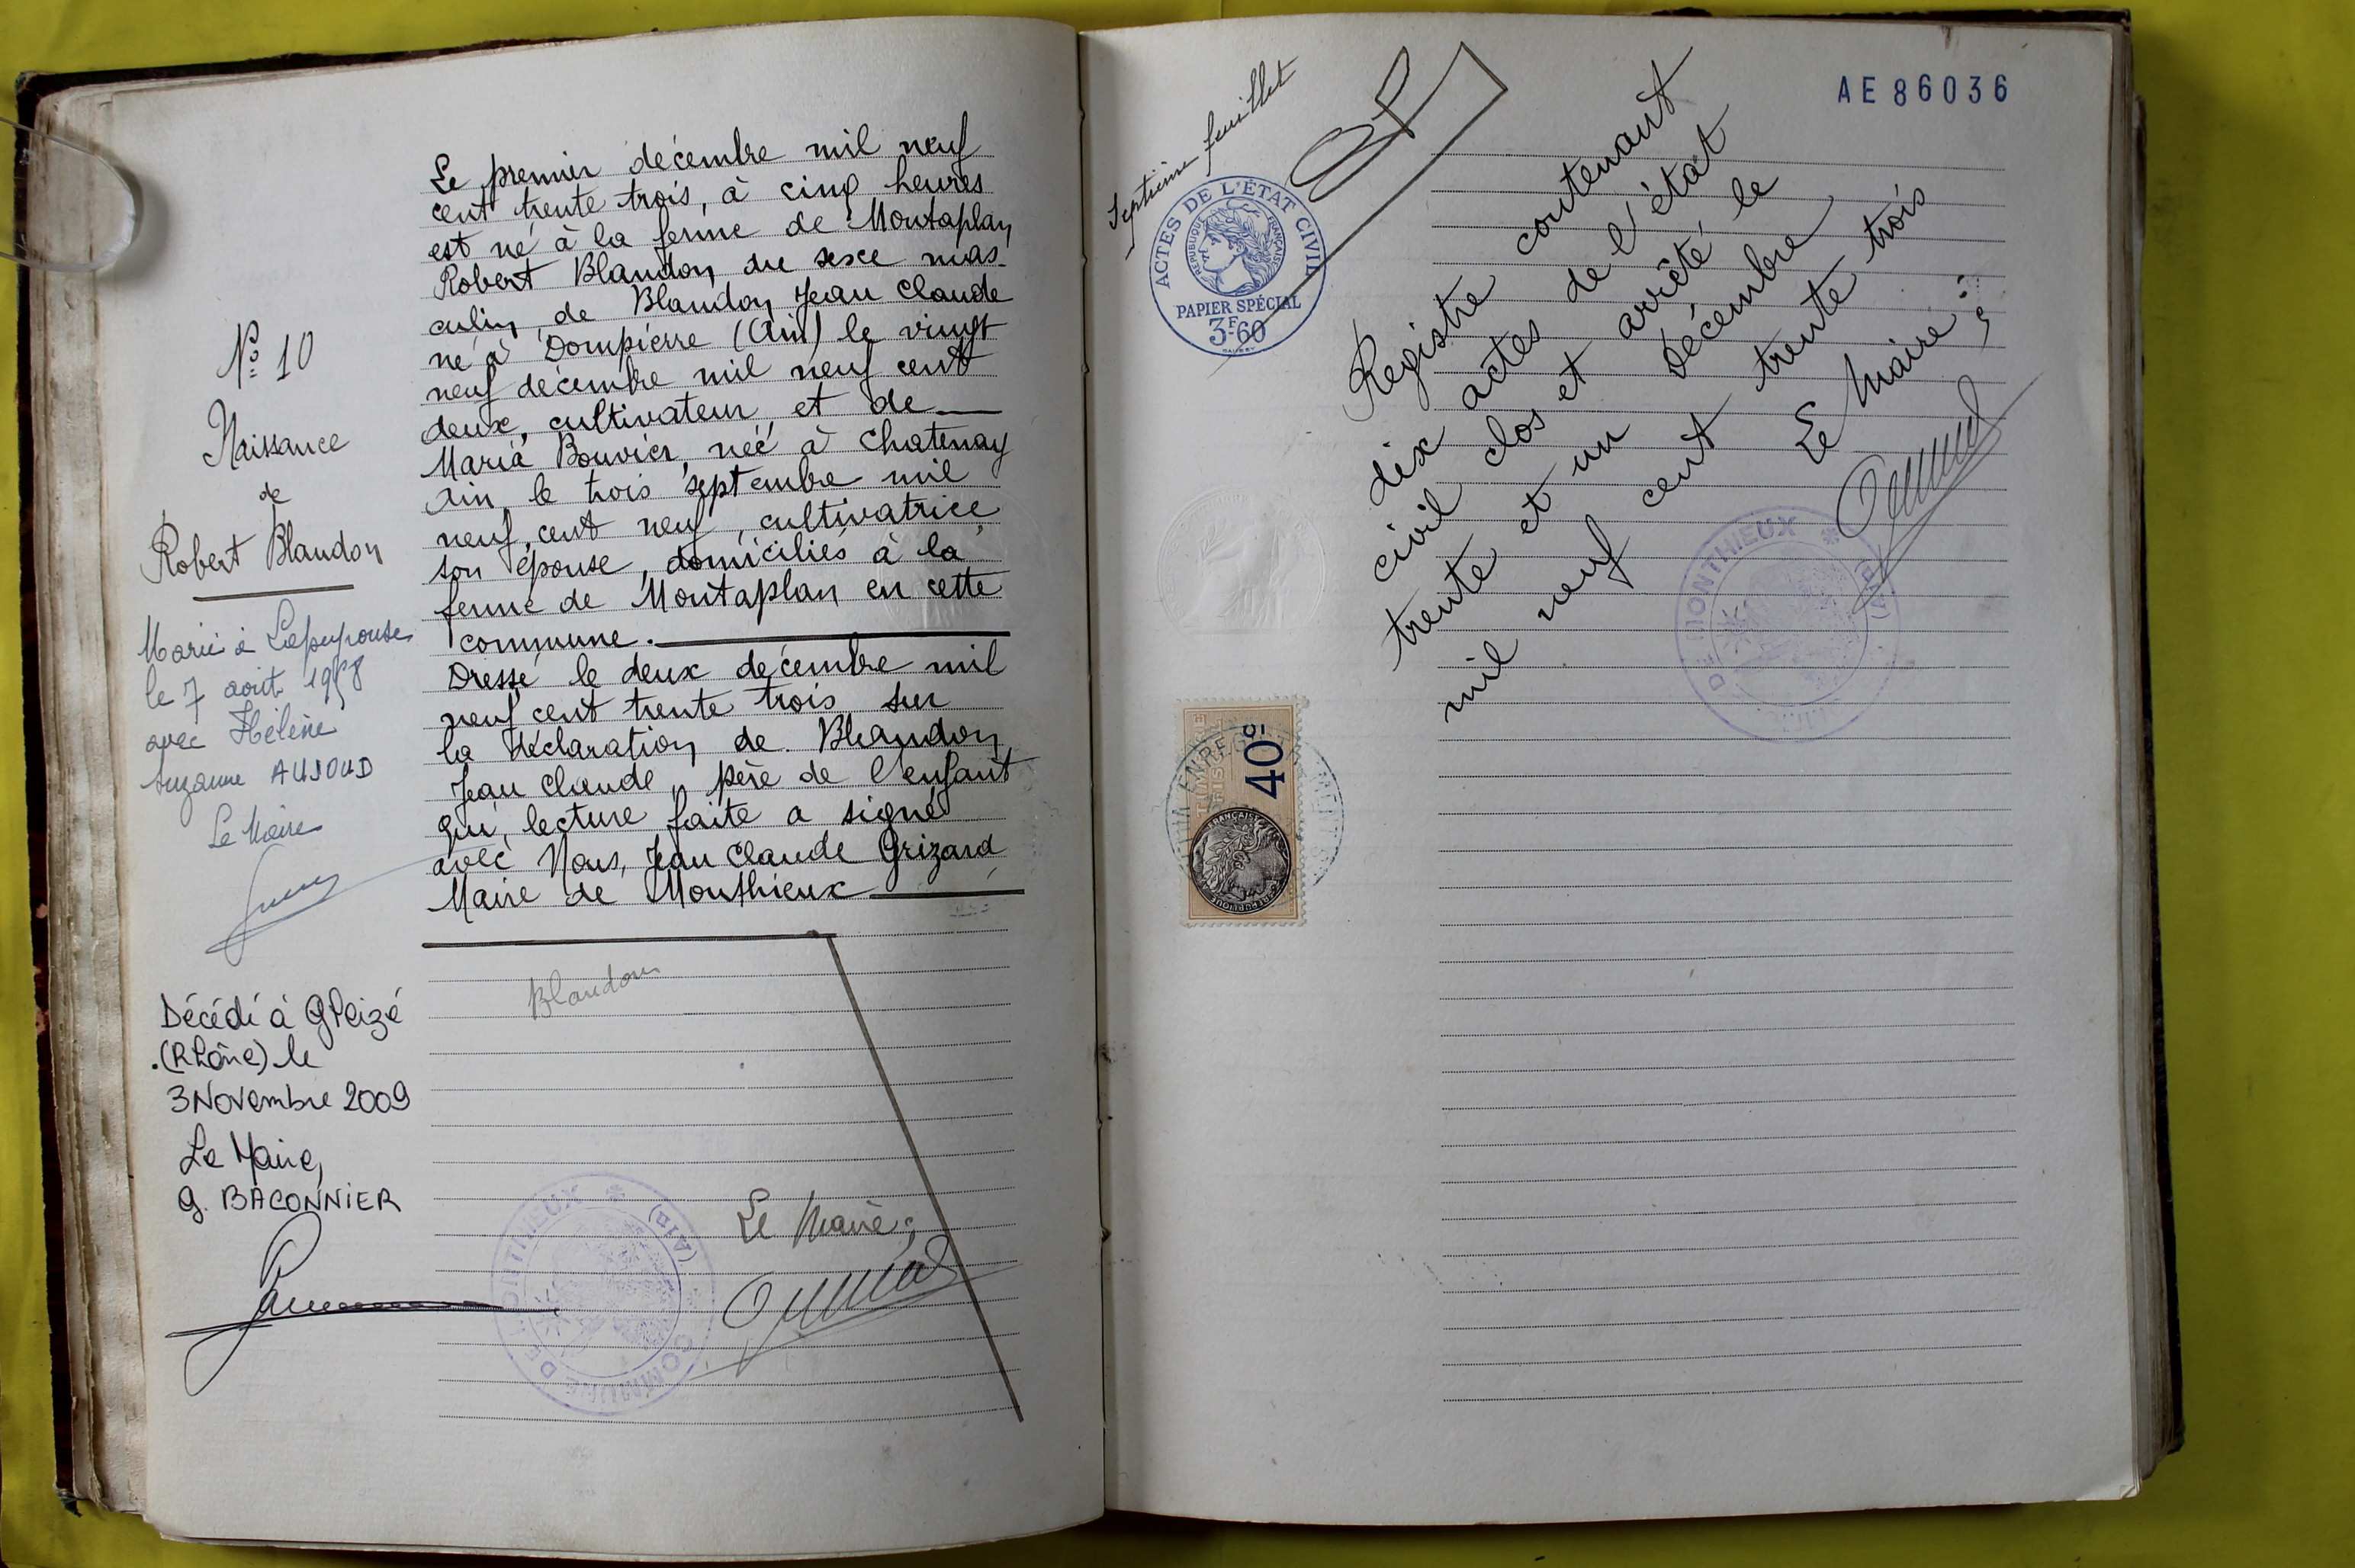 Nº 10
Naissance
de
Robert Blandon
Marié à Lapeyrouse
le 7 août 1958
avec Hélène
Suzanne AUJOUD
Le Maire
Décédé à Gleizé
(Rhône) le
3 Novembre 2009
Le Maire,
G. BACONNIER
Le premier décembre mil neuf
cent trente trois, à cinq heures
est né à la ferme de Montaplan
Robert Blandon, du sexe mas-
culin, de Blandon Jean Claude
né à Dompierre (Ain) le vingt
neuf décembre mil neuf cent
deux, cultivateur, et de
Maria Bouvier, née à Chatenay
Ain, le trois septembre mil
neuf cent neuf, cultivatrice,
son épouse, domiciliés à la
ferme de Montaplan en cette
commune.
Dressé le deux décembre mil
neuf cent trente trois, sur
la déclaration de Blandon
Jean Claude, père de l'enfant
qui, lecture faite a signé
avec Nous, Jean Claude Grizard
Maire de Monthieux
Blandon
Le Maire,
COMMUNE DE MONTHIEUX
(Ain)
Septième feuillet
AE 86036
ACTES DE L'ÉTAT CIVIL
RÉPUBLIQUE FRANÇAISE
PAPIER SPÉCIAL
3F.60
Registre contenant
dix actes de l'état
civil clos et arrêté le
trente et un Décembre
mil neuf cent trente trois
Le Maire :
DE MONTHIEUX
(Ain)
TIMBRE
FISCAL
40c